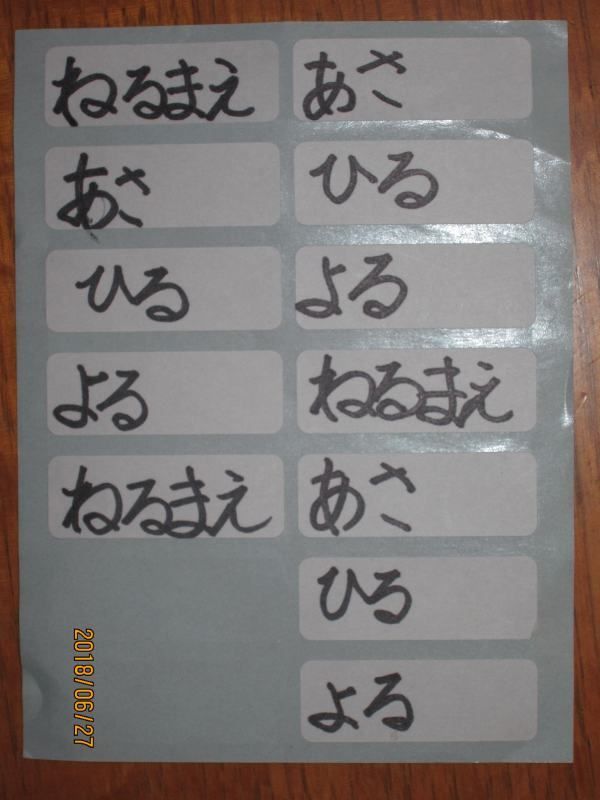 ねるまえ
あさ
ひる
よる
ねるまえ
あさ
ひる
よる
ねるまえ
あさ
ひる
よる
2018/06/27